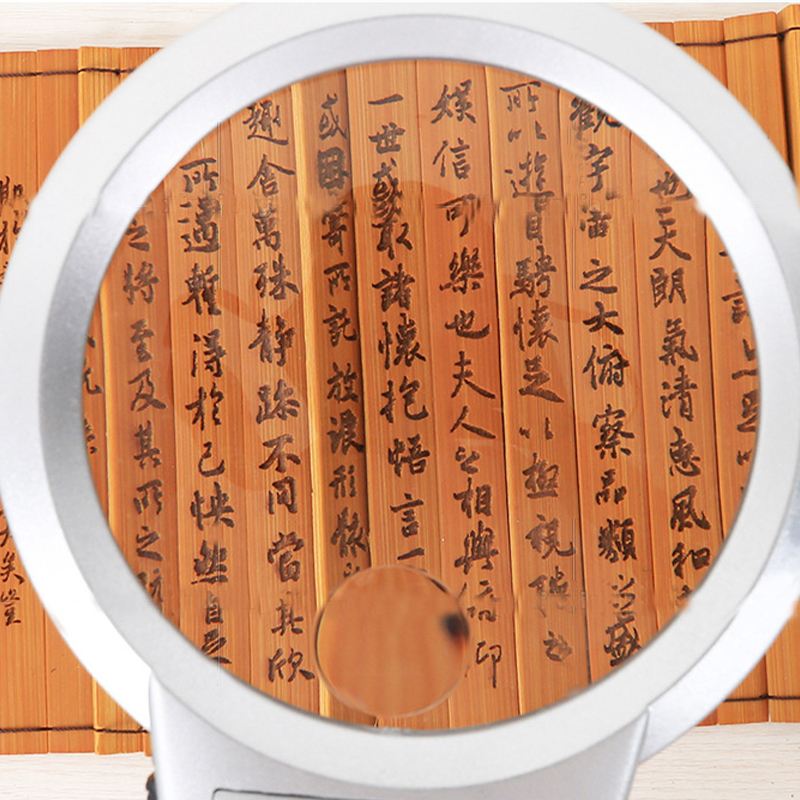 詠亦足以
也天朗氣清惠風和
觀宇宙之大俯察品類之盛
所以遊目騁懷足以極視聽之
娛信可樂也夫人之相與俯仰
一世或取諸懷抱悟言一
或因寄所託放浪形骸
趣舍萬殊静躁不同當其欣
所遇暫得於己怏然自足
之將至及其所之
矣豈